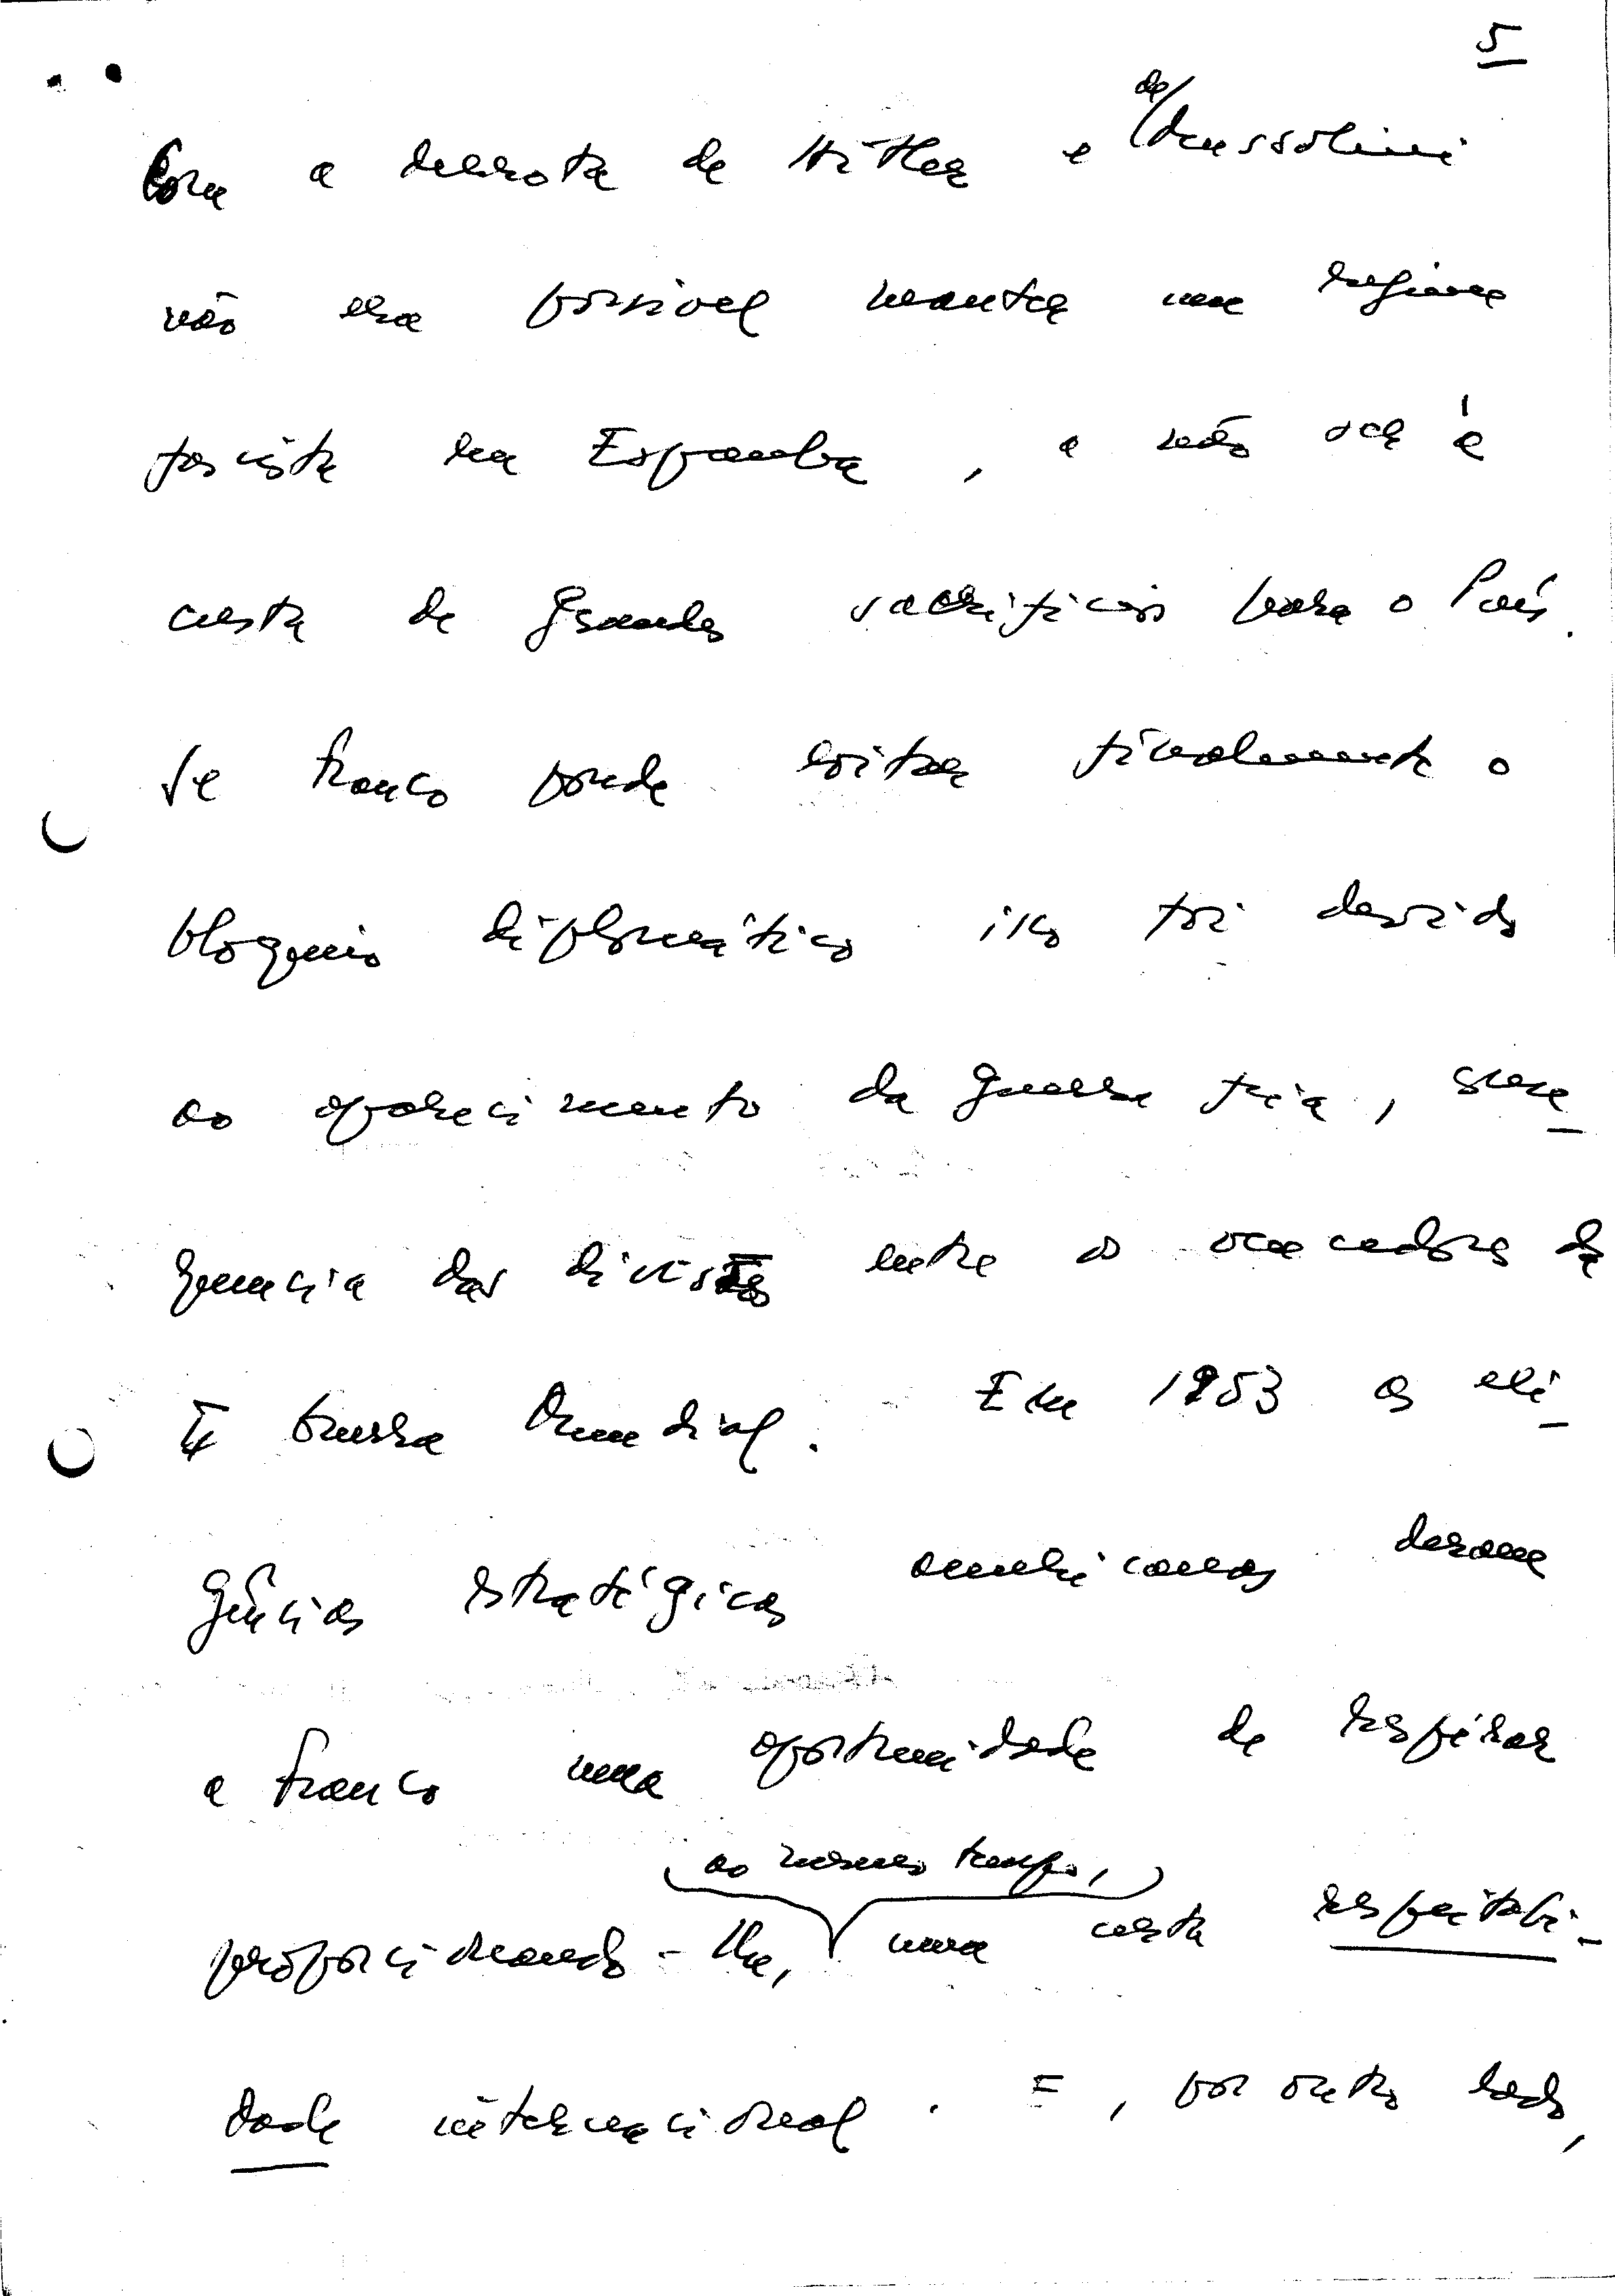 5
Com a derrota de Hitler e de Mussolini
não era possivel manter um regime
fascista na Espanha, a não ser à
custa de grandes sacrificios para o País.
Se Franco poude evitar finalmente o
bloqueio diplomático isso foi devido
ao aparecimento da guerra fria, 
quencia das divisões entre os vencedores da
II Guerra Mundial. Em 1953 as exi-
gências estratégicas americanas deram
a Franco uma oportunidade de respirar
ao mesmo tempo,
proporcionando-lhe, uma certa respeitabi-
dade internacional. E, por outro lado,